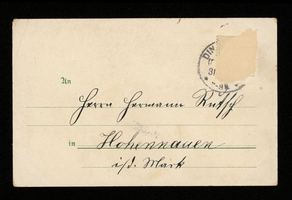 DIN
31
An
Herrn Hermann Rutsch
in Hohennauen
i/d. Mark